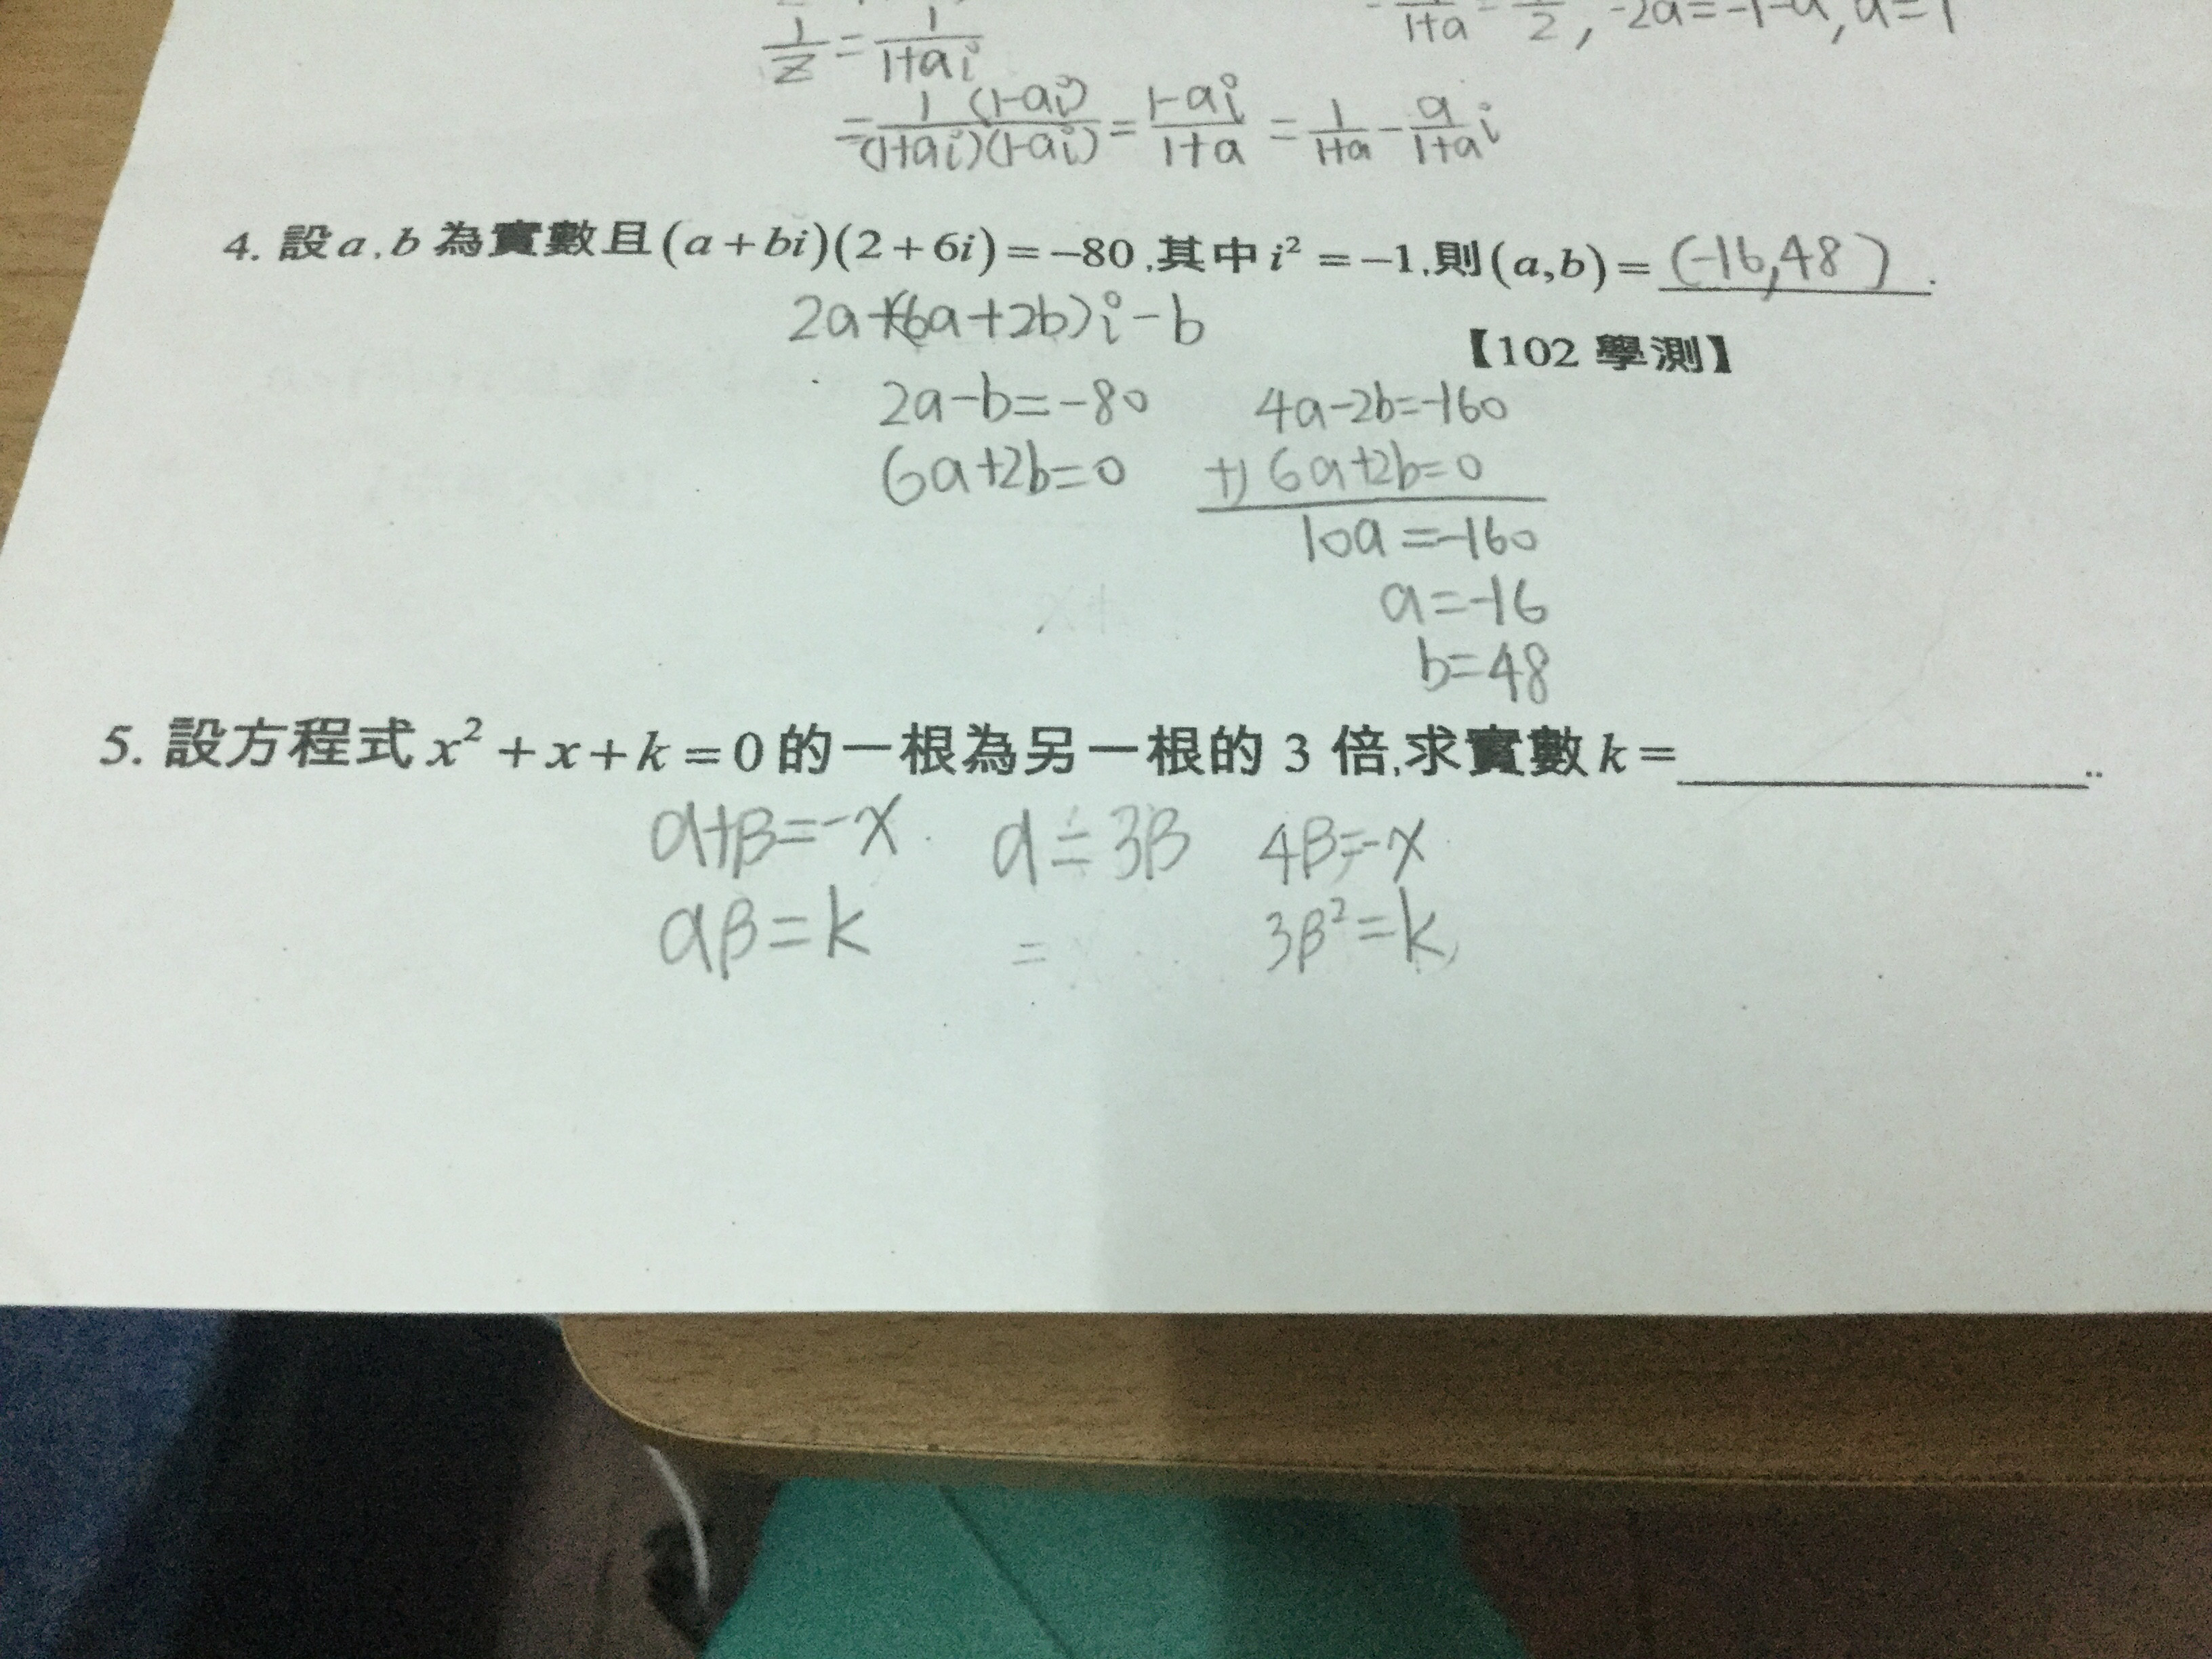 1/z = 1/(1+ai)
1+a 2 , -2a=-1-a, a=1
= 1 (1-ai)/(1+ai)(1-ai) = (1-ai)/(1+a) = 1/(1+a) - a/(1+a) i
4. 設a,b為實數且(a+bi)(2+6i)=-80,其中i²=-1,則(a,b)=(-16,48).
2a+(6a+2b)i-b
【102 學測】
2a-b=-80 4a-2b=-160
6a+2b=0 +) 6a+2b=0
10a=-160
a=-16
b=48
5. 設方程式x²+x+k=0的一根為另一根的 3 倍,求實數k=__________..
α+β=-x α=3β 4β=-x
αβ=k = 3β²=k